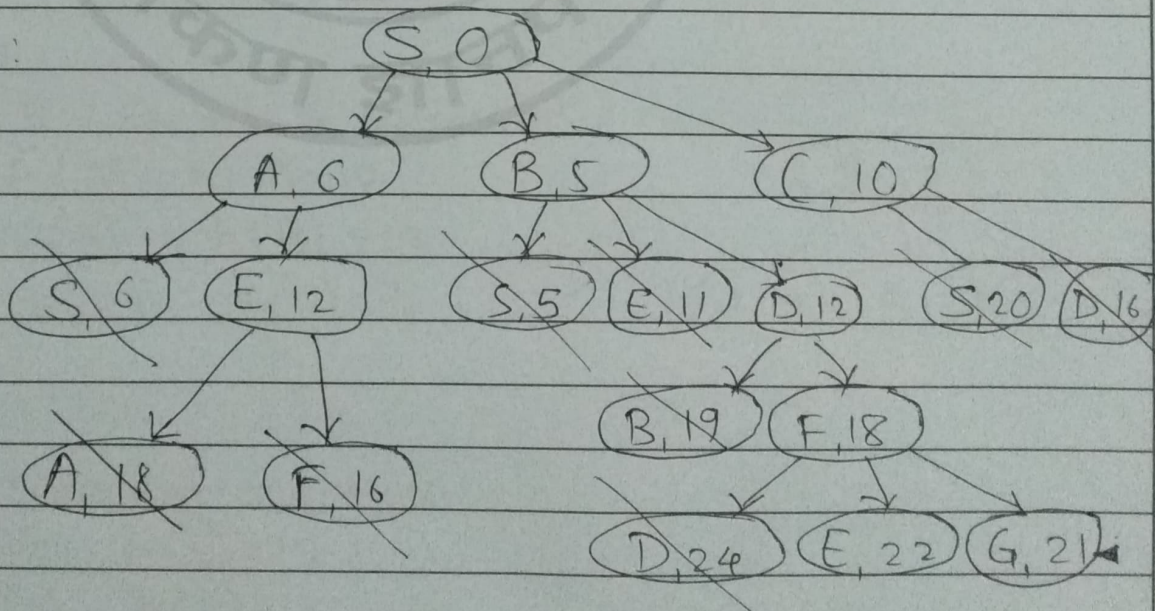 S, 0
A, 6 B, 5 C, 10
S, 6 E, 12 S, 5 E, 11 D, 12 S, 20 D, 16
B, 19 F, 18
A, 18 F, 16
D, 24 E, 22 G, 21